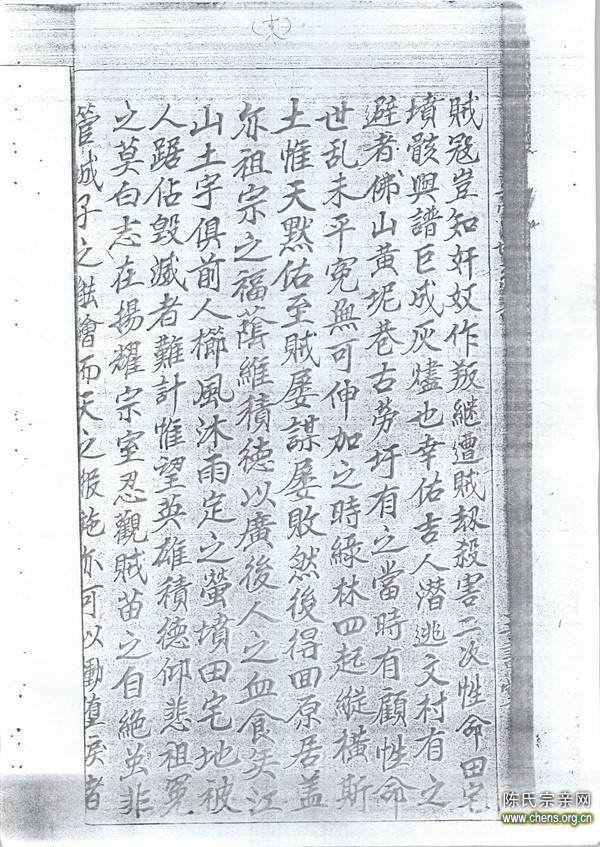 （十八）
賊冠豈知奸奴作叛継遭賊刼殺害二次性命田宅
墳骸與譜巨成灰燼也幸佑吉人潜逃文村有之
避者佛山黄坭巷古勞圩有之當時有顧性命
世乱未平寃無可伸加之時緑林四起縱横斯
土惟天黙佑至賊屡謀屡敗然後得回原居盖
亦祖宗之福蔭維積德以廣後人之血食矣江
山土宇俱前人櫛風沐雨定之螢墳田宅地被
人踞佔毁滅者難計惟望英雄積德仰悲祖冤
之莫白志在揚耀宗室忍觀賊苗之自絶虽非
管城子之能繪而天之報施亦可以動堕淚者
陈氏宗亲网
www.chens.org.cn